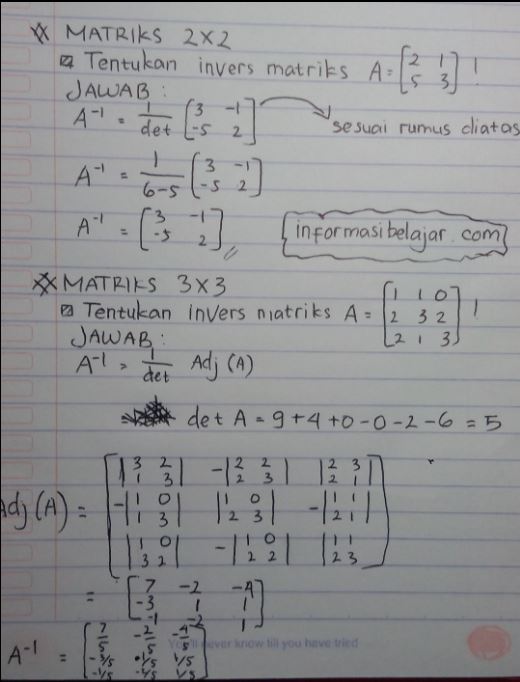 MATRIKS 2x2
Tentukan invers matriks A = [2 1; 5 3] !
JAWAB :
A⁻¹ = 1/det [3 -1; -5 2] → sesuai rumus diatas
A⁻¹ = 1/6-5 [3 -1; -5 2]
A⁻¹ = [3 -1; -5 2] //
informasibelajar.com
MATRIKS 3x3
Tentukan invers matriks A = [1 1 0; 2 3 2; 2 1 3] !
JAWAB :
A⁻¹ = 1/det Adj (A)
det A = 9+4+0-0-2-6 = 5
Adj (A) = [|3 2; 1 3| -|2 2; 2 3| |2 3; 2 1|; -|1 0; 1 3| |1 0; 2 3| -|1 1; 2 1|; |1 0; 3 2| -|1 0; 2 2| |1 1; 2 3|]
= [7 -2 -4; -3 1 1; -1 -2 1]
You'll never know till you have tried
A⁻¹ = [7/5 -2/5 -4/5; -3/5 1/5 1/5; -1/5 -2/5 1/5]